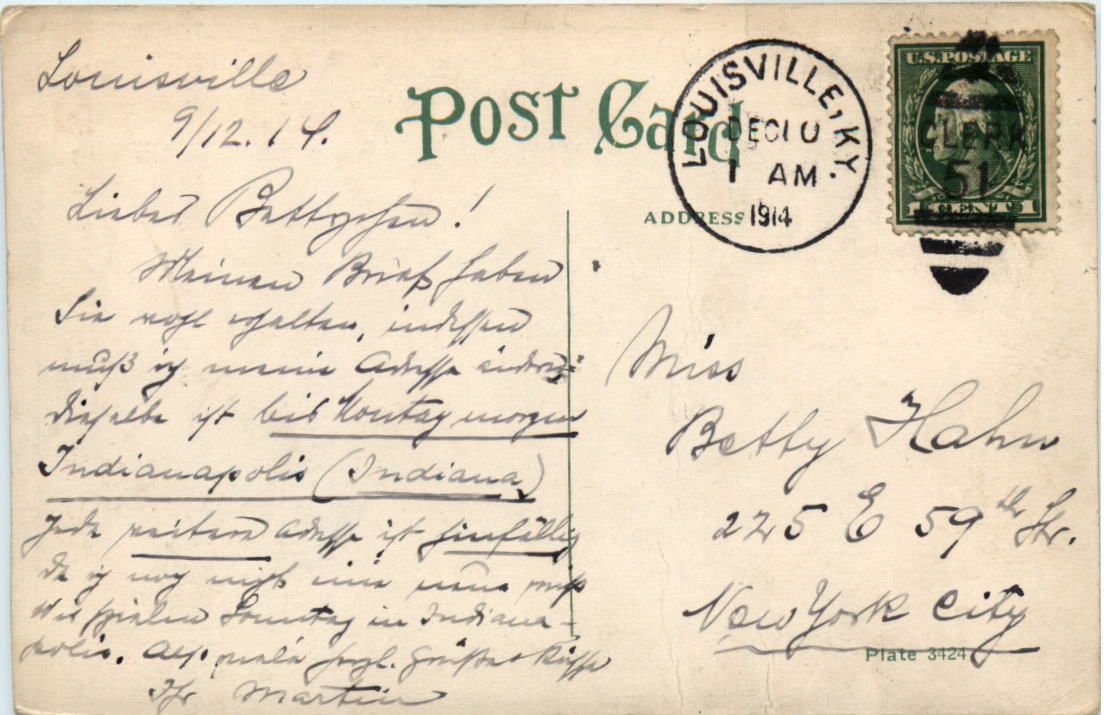 Louisville
9/12.14.
Liebes Bettychen!
Meinen Brief haben
Sie wohl erhalten, indessen
muß ich meine Adresse ändern;
dieselbe ist bis Montag morgen
Indianapolis (Indiana)
Jede weitere Adresse ist hinfällig
da ich noch nicht eine neue weiß
Wir spielen Sonntag in Indiana-
polis. Also viele herzl. Grüße + Küsse
Ihr Martin
POST CARD
ADDRESS
LOUISVILLE, KY.
DEC 10
1 AM
1914
U.S. POSTAGE
CLERK
51
1 CENTS 1
Miss
Betty Hahn
225 E 59th Str.
New York City
Plate 3424